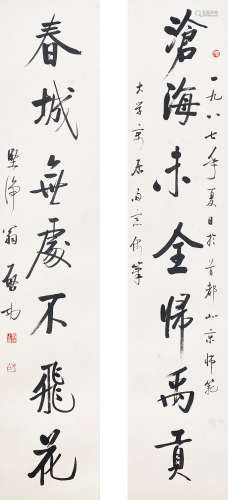 滄海未全歸禹貢
一九八七年夏日於首都北京師範
大學
春城無處不飛花
堅淨翁啟功